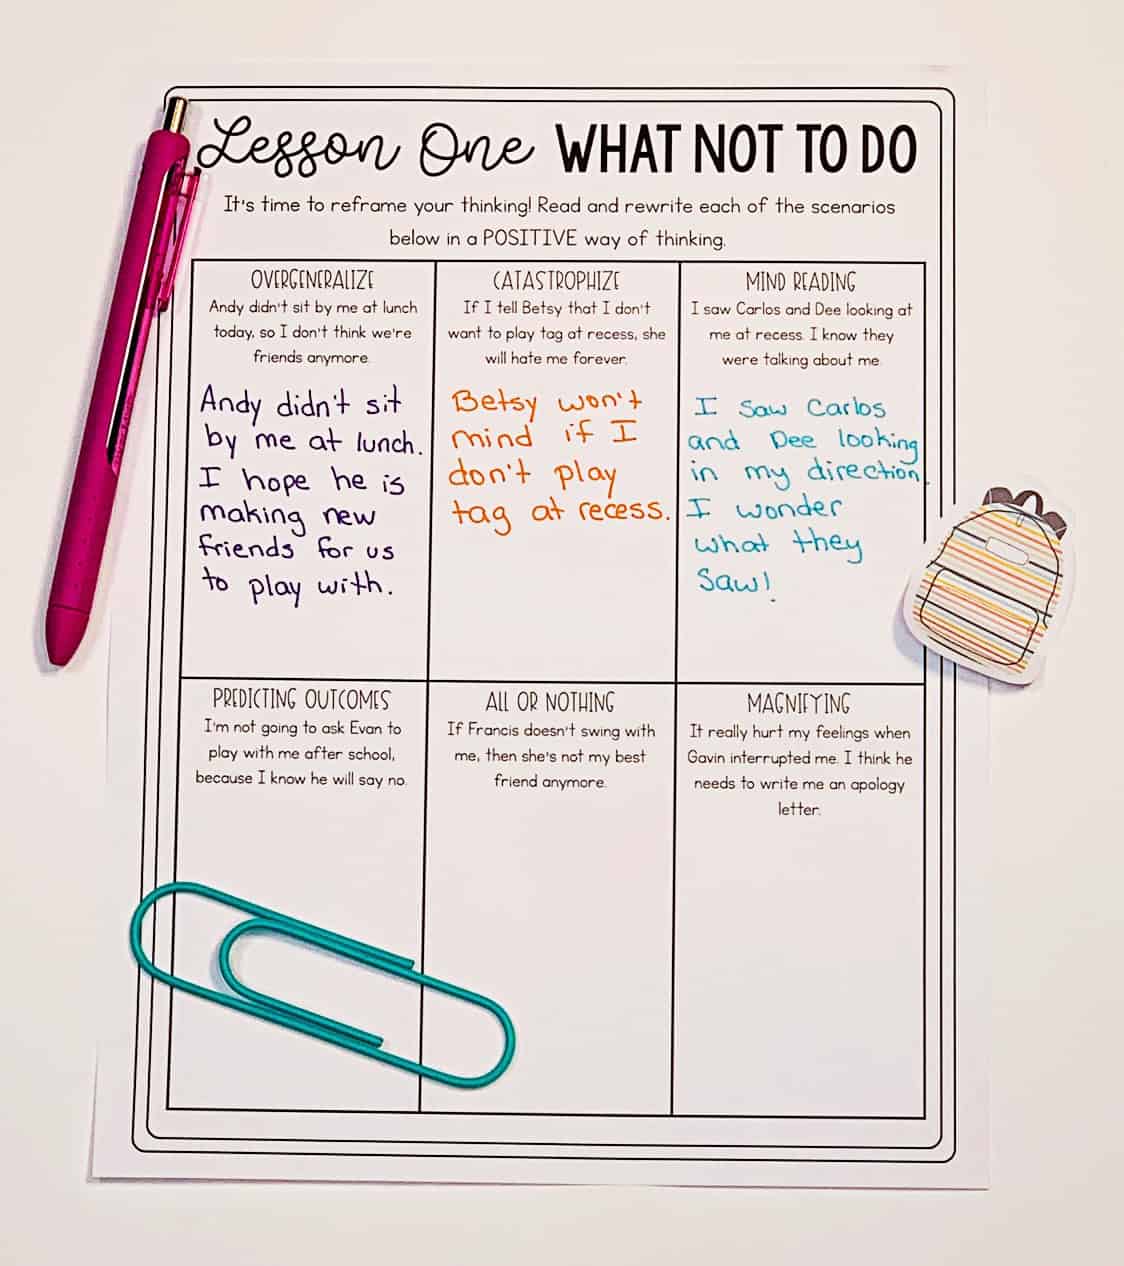 Lesson One WHAT NOT TO DO
It's time to reframe your thinking! Read and rewrite each of the scenarios
below in a POSITIVE way of thinking.
OVERGENERALIZE
Andy didn't sit by me at lunch
today, so I don't think we're
friends anymore.
Andy didn't sit
by me at lunch.
I hope he is
making new
friends for us
to play with.
CATASTROPHIZE
If I tell Betsy that I don't
want to play tag at recess, she
will hate me forever.
Betsy won't
mind if I
don't play
tag at recess.
MIND READING
I saw Carlos and Dee looking at
me at recess. I know they
were talking about me.
I saw Carlos
and Dee looking
in my direction.
I wonder
what they
saw!
PREDICTING OUTCOMES
I'm not going to ask Evan to
play with me after school,
because I know he will say no.
ALL OR NOTHING
If Francis doesn't swing with
me, then she's not my best
friend anymore.
MAGNIFYING
It really hurt my feelings when
Gavin interrupted me. I think he
needs to write me an apology
letter.